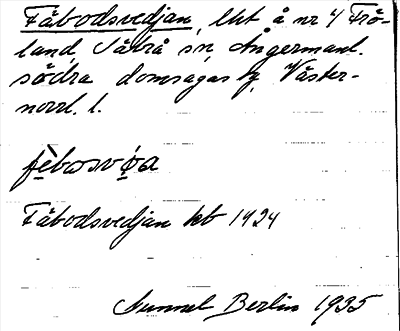 Fåbodsvedjan, lht å nr 4 Frö-
land, Säbrå sn, Ångermanl.
södra domsagas tg, Väster-
norrl. l.
fèbωsvǿa
Fåbodsvedjan kb 1924
Gunnel Berlin 1935